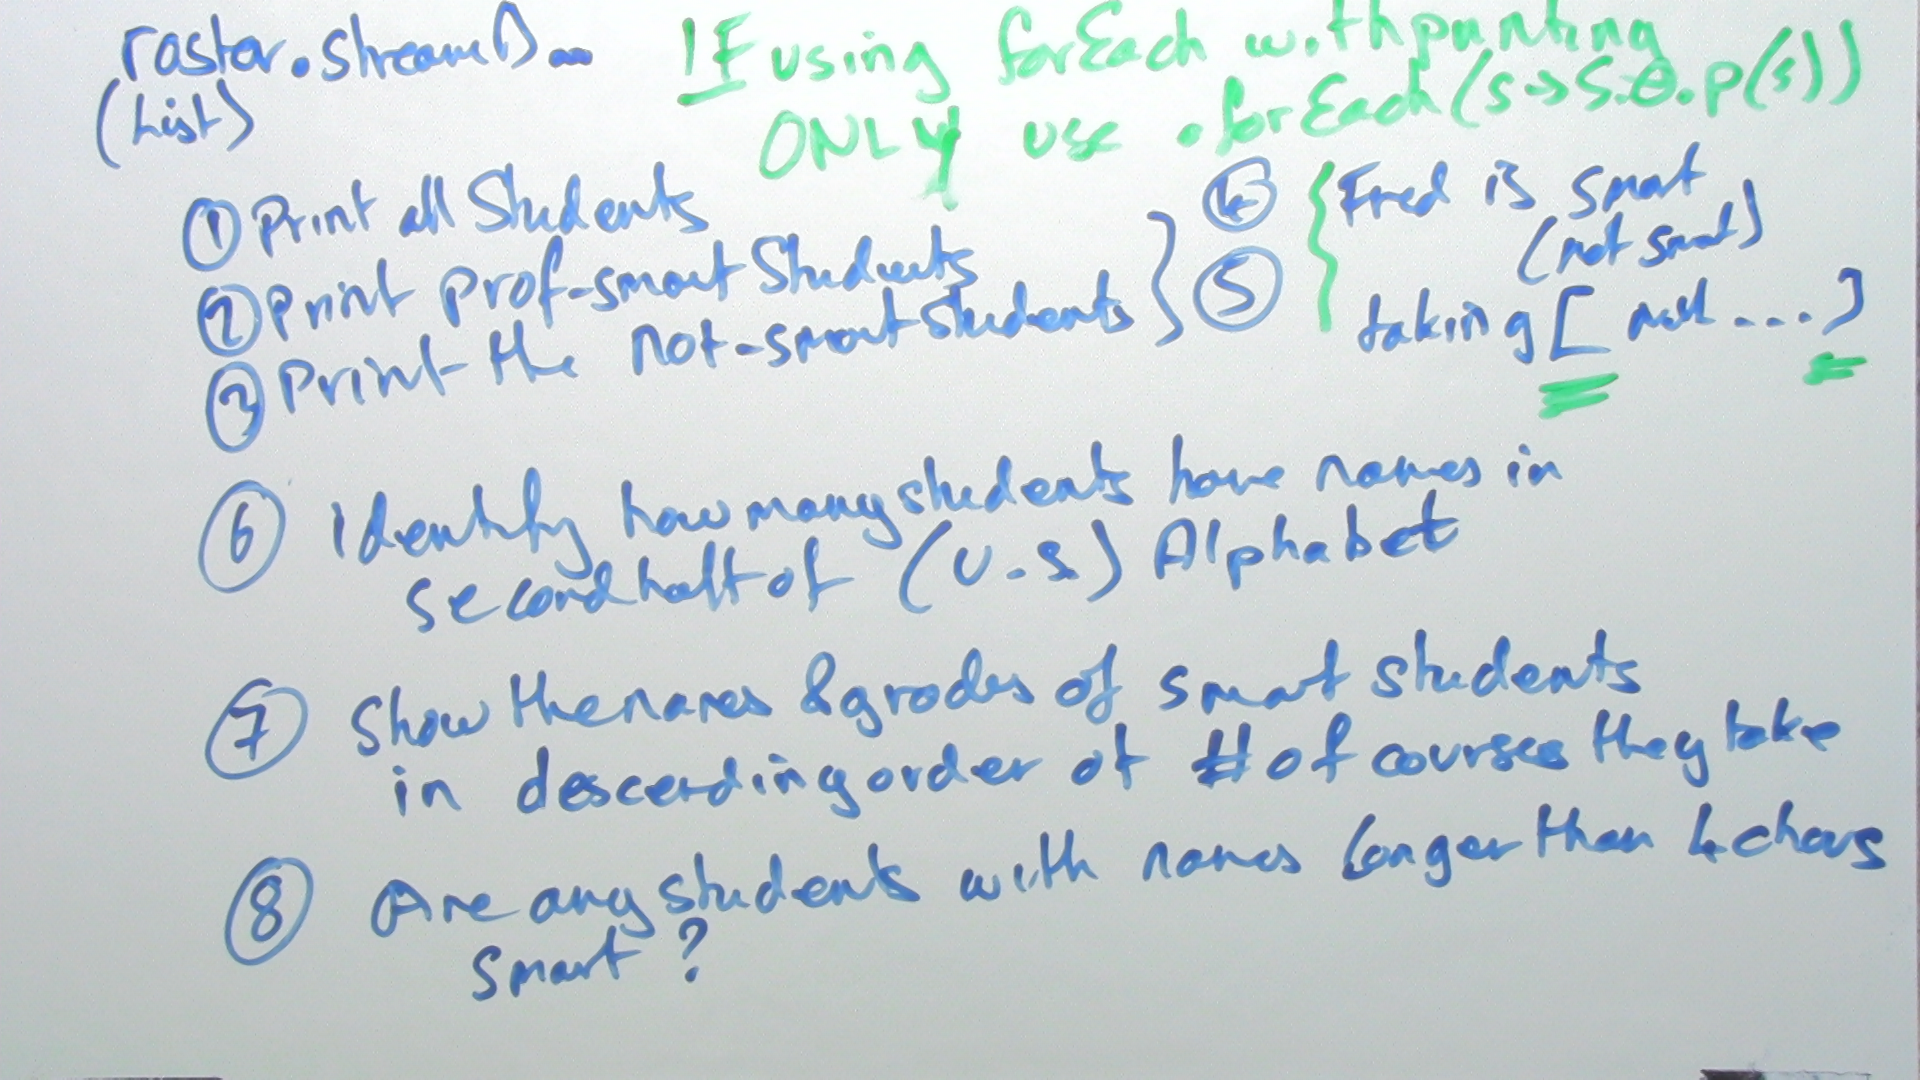 roster.stream()...
(List)
IF using forEach with printing
ONLY use .forEach(s->S.O.p(s))
① Print all Students
② Print prof-smart Students
③ Print the not-smart Students
④ Fred is smart
(not smart)
⑤ taking [ math .... ]
⑥ Identify how many students have names in
second half of (U.S) Alphabet
⑦ Show the names & grades of smart students
in descending order of # of courses they take
⑧ Are any students with names longer than 4 chars
smart?